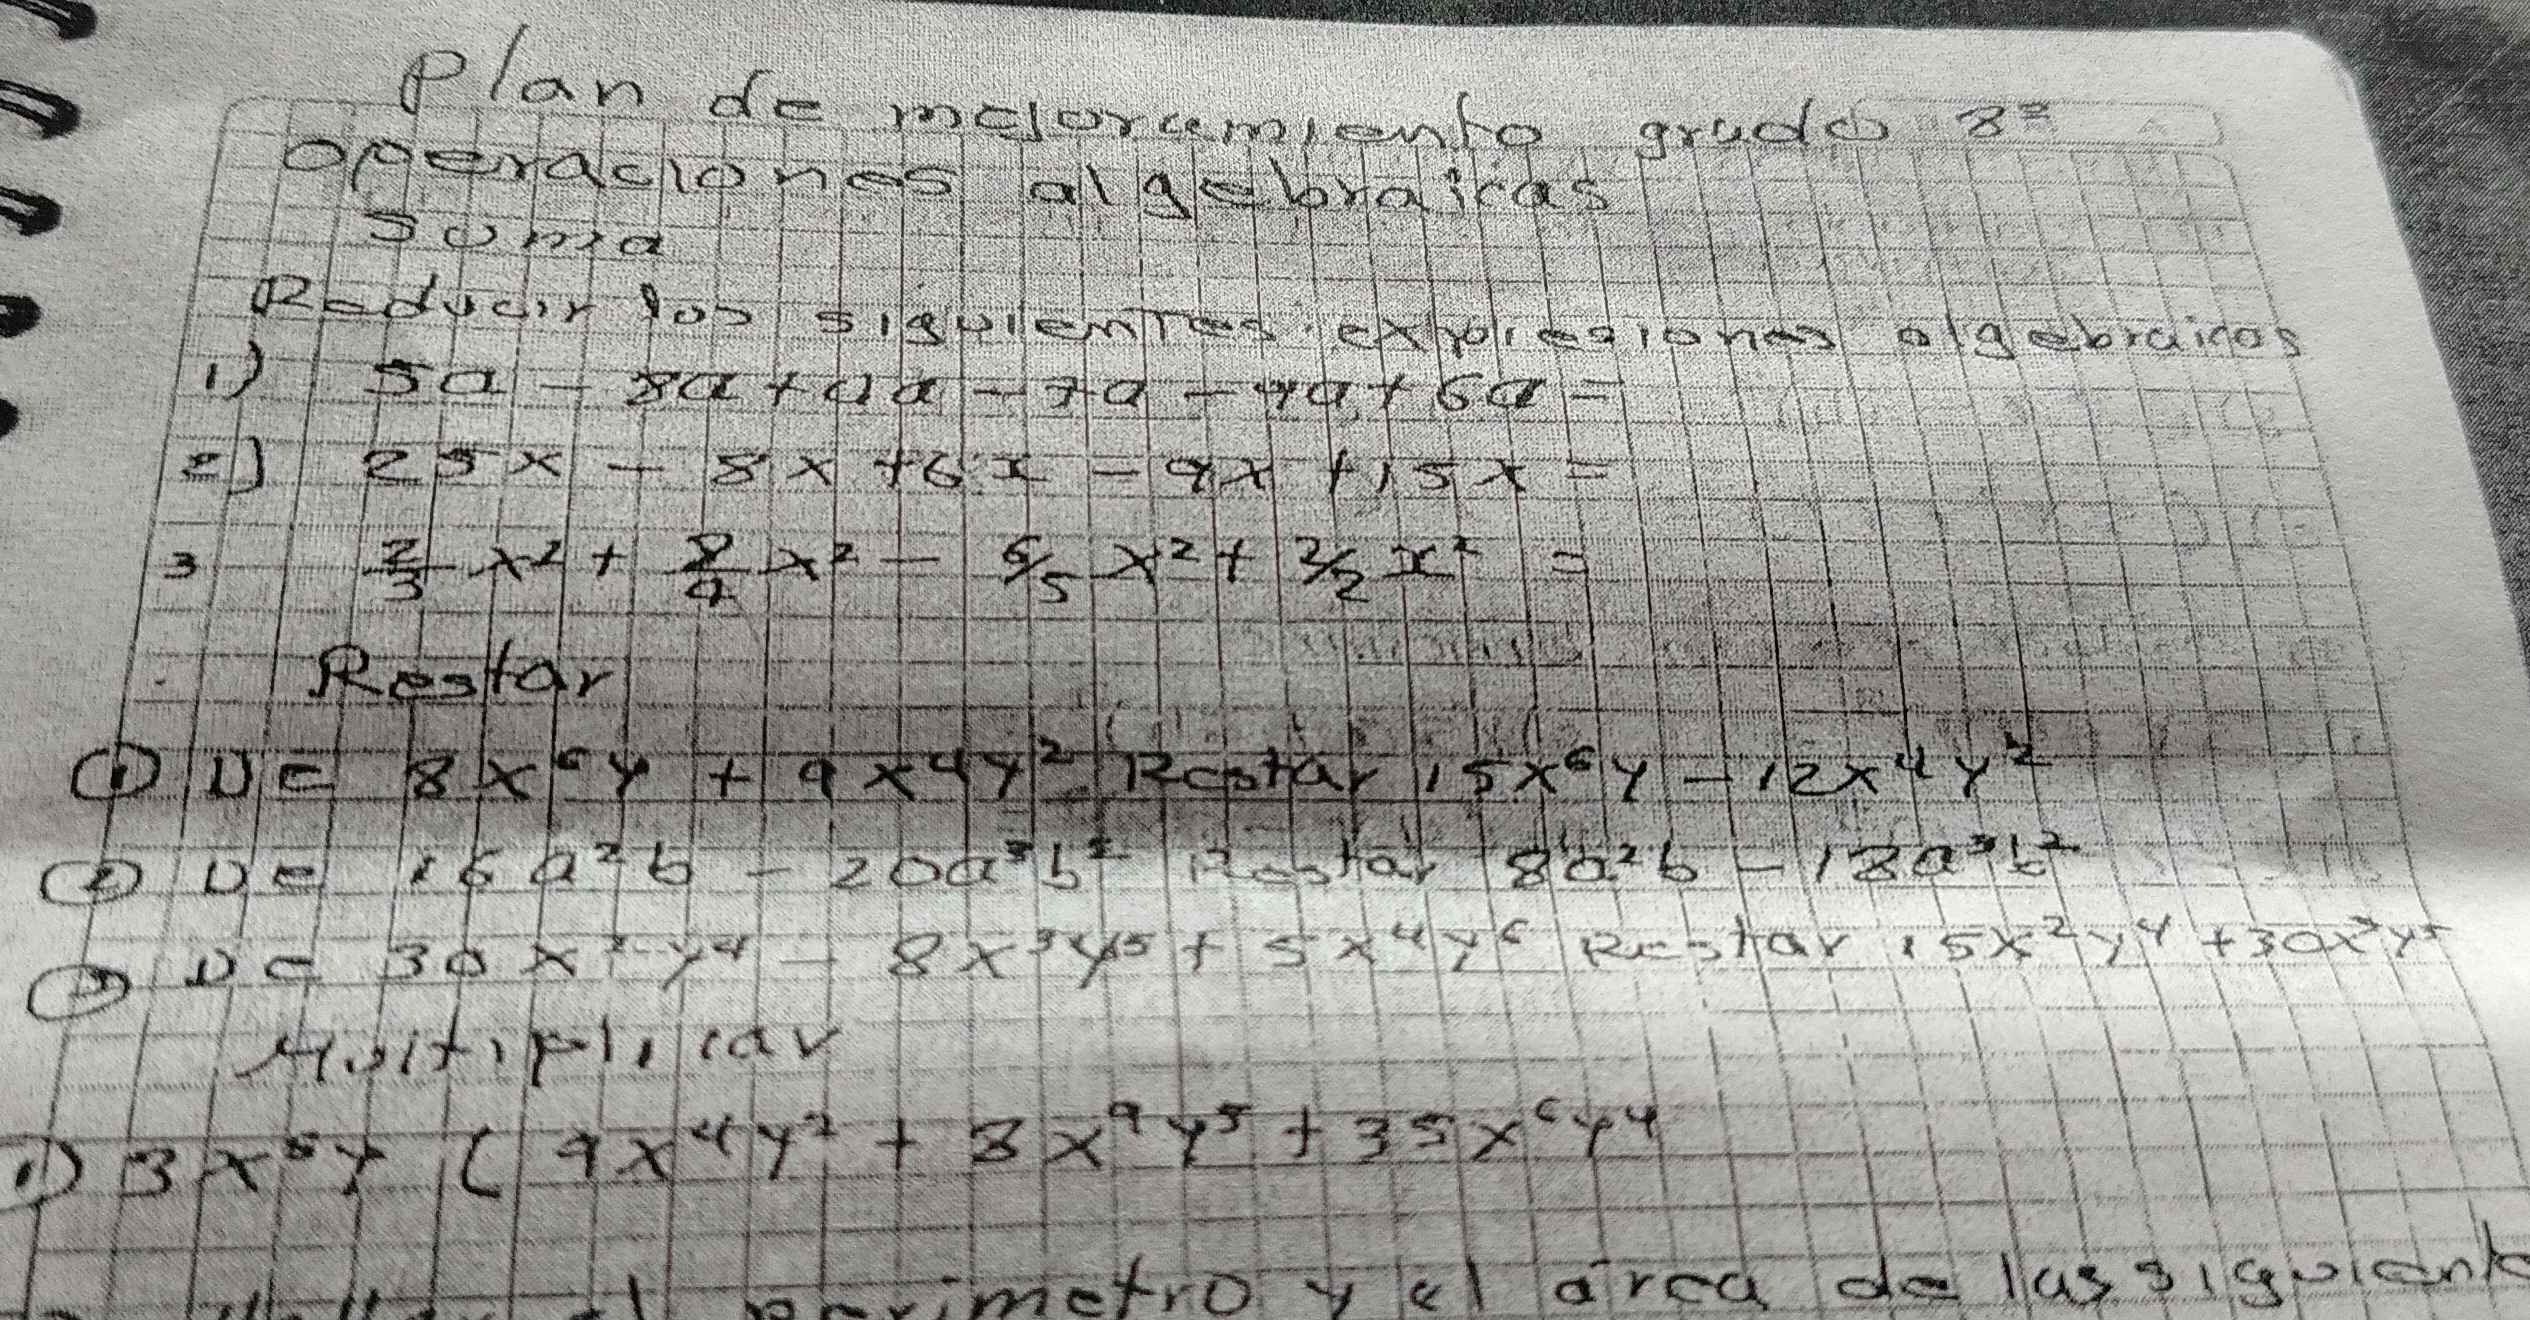 Plan de mejoramiento grado 8º
operaciones algebraicas
Suma
Reducir las siguientes expresiones algebraicas
1) 5a - 8a + 4a - 7a - 4a + 6a =
2) 25x - 8x + 6x - 9x + 15x =
3 2/3 x² + 8/4 x² - 6/5 x² + 2/2 x² =
Restar
① De 8x⁶y + 9x⁴y² Restar 15x⁶y - 12x⁴y²
② De 16a²b - 20a³b² Restar 8a²b - 18a³b²
③ De 30x²y⁴ - 8x³y⁵ + 5x⁴y⁶ Restar 15x²y⁴ + 30x³y⁵
Multiplicar
1) 3x⁵y ( 9x⁴y² + 3x⁹y⁵ + 35x⁶y⁴
el perimetro y el área de las siguiente